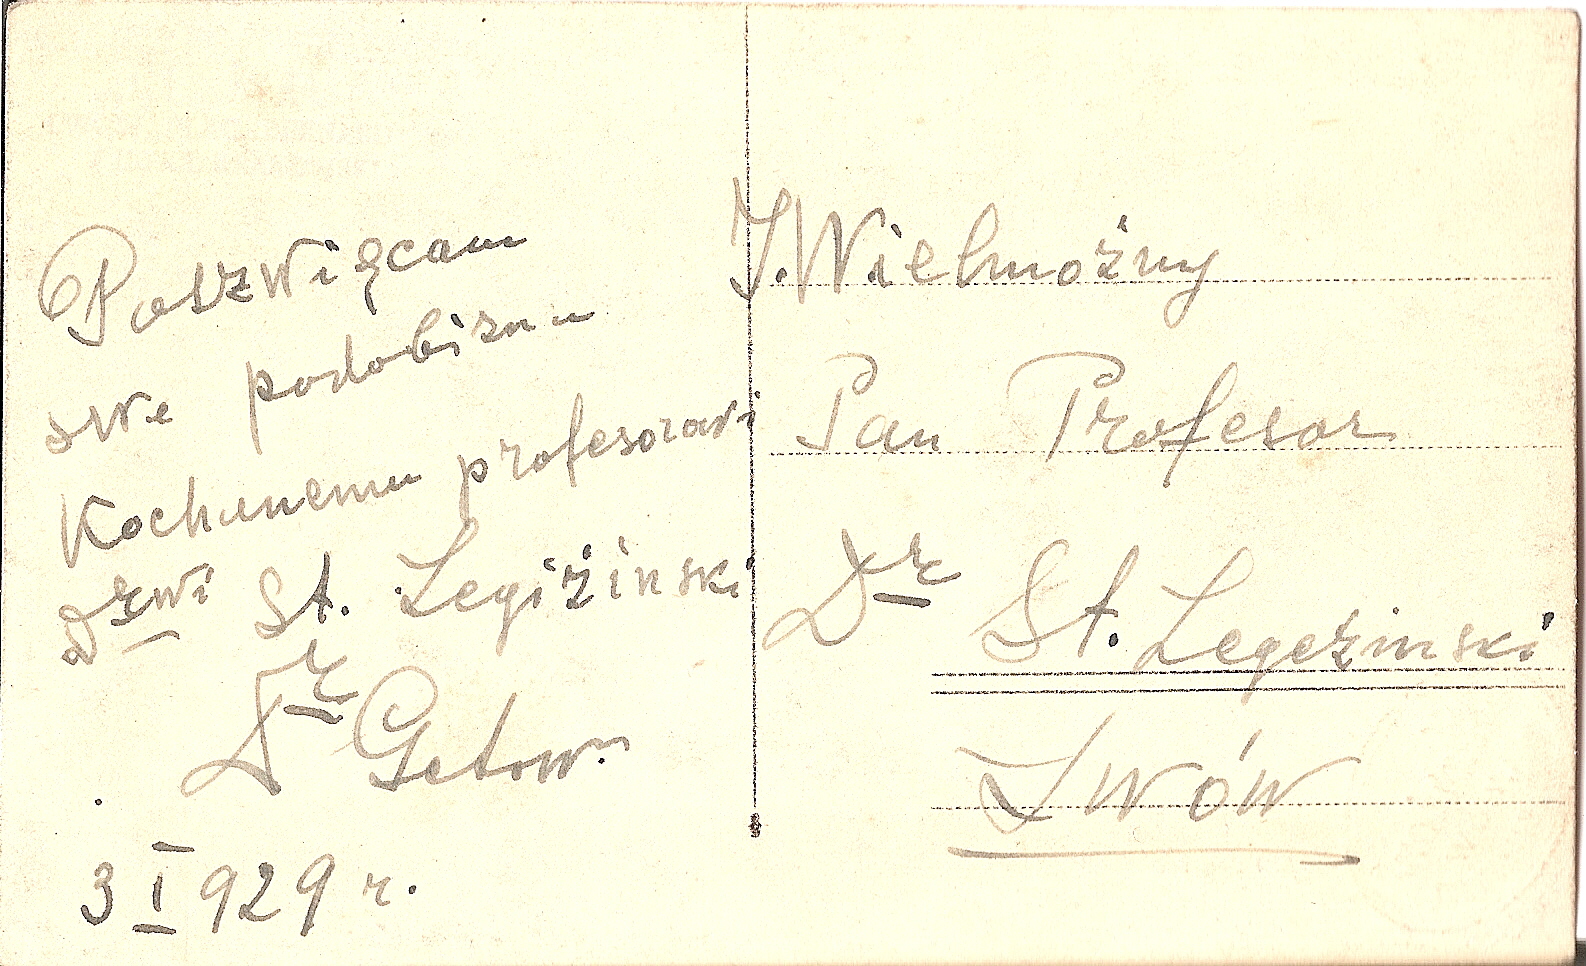 Poszwięcam
swe podobiznu
Kochanemu profesorowi
Drwi St. Legiżinski
Dr
3 I 929 r.
J. Wielmożny
Pan Profesor
Dr St. Legeżinski
Lwów